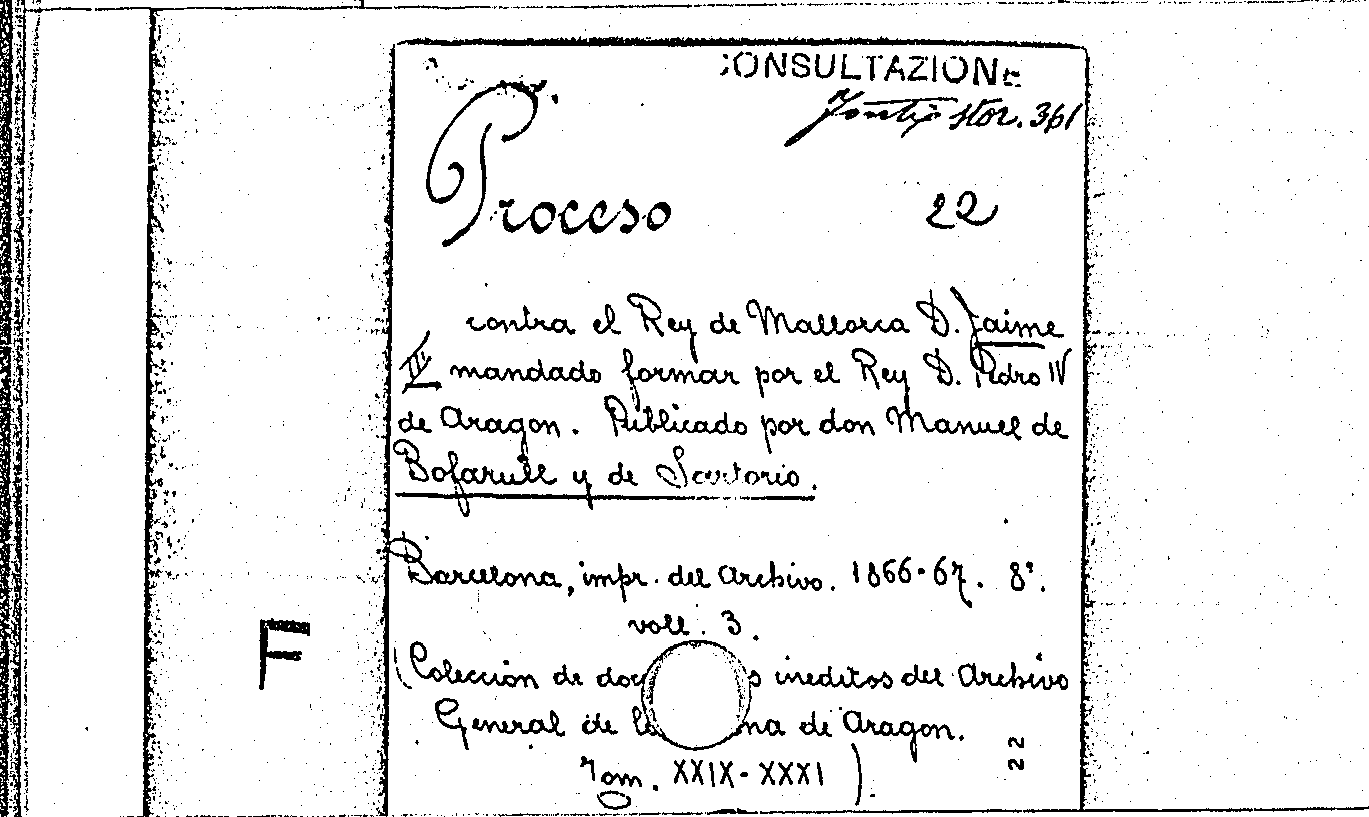 CONSULTAZIONE
Fontiꝫ stor. 361
Proceso 22
contra el Rey de Mallorca D. Jaime
III mandado formar por el Rey D. Pedro IV
de Aragon. Publicado por don Manuel de
Bofarull y de Sartorio.
Barcelona, impr. del Archivo. 1866-67. 8°.
voll. 3.
(Colección de doc s ineditos del Archivo
General de la na de Aragon.
Tom. XXIX-XXXI).
22
F